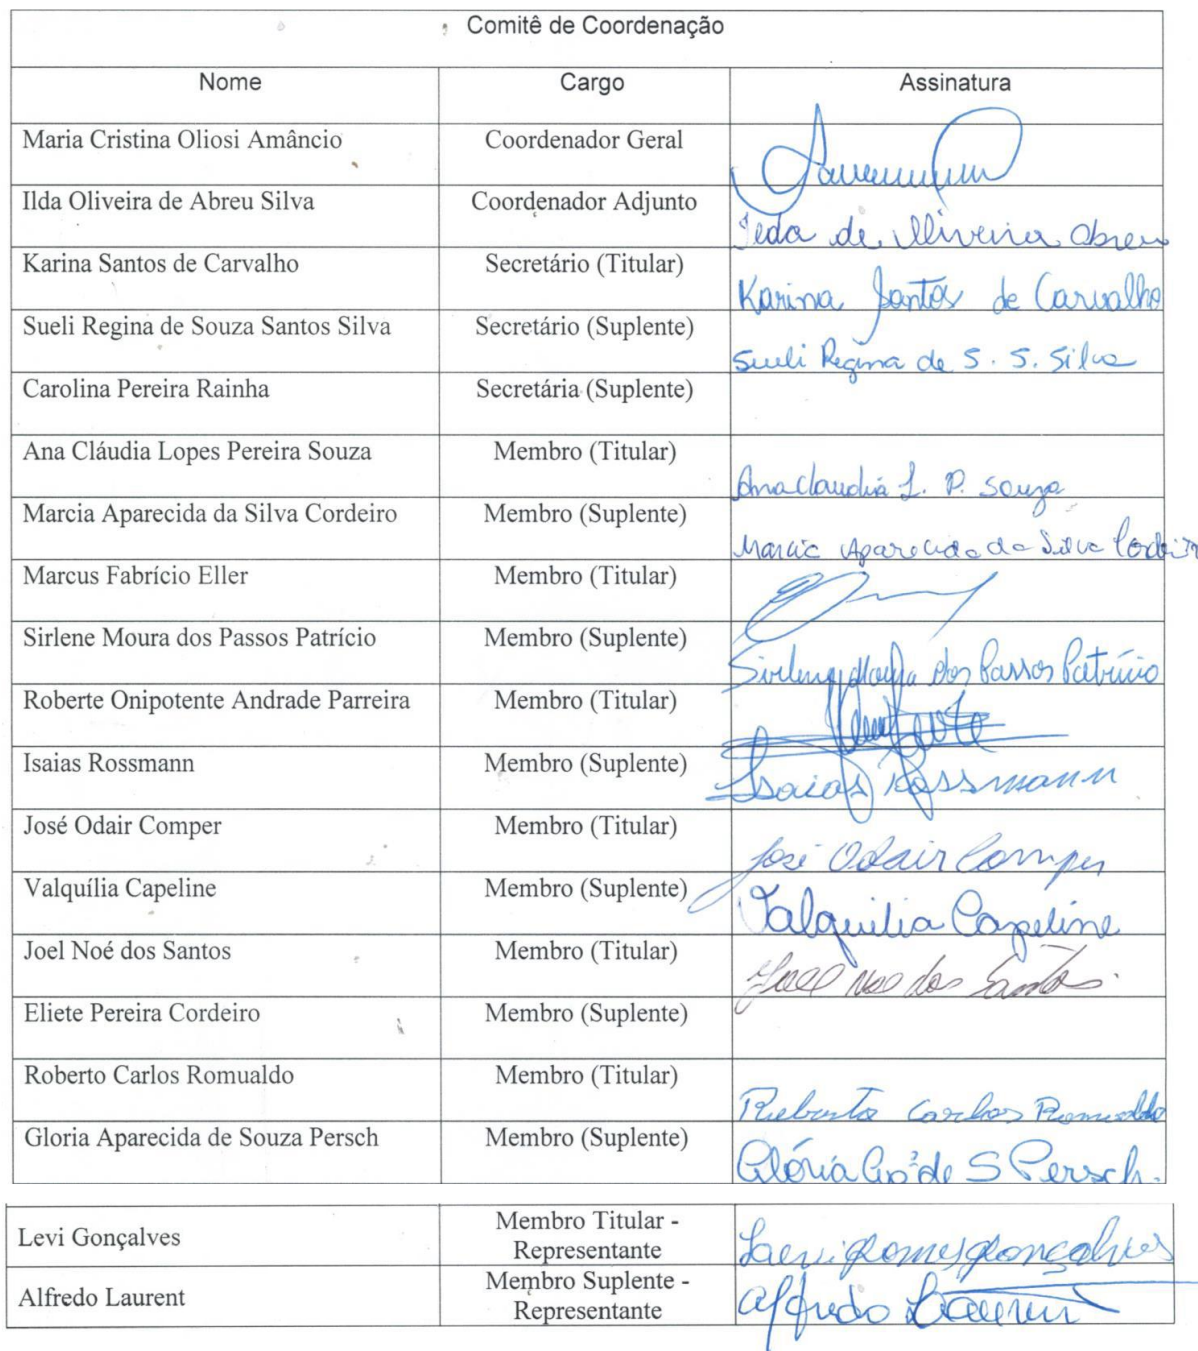 Comitê de Coordenação
Nome Cargo Assinatura
Maria Cristina Oliosi Amâncio Coordenador Geral
Ilda Oliveira de Abreu Silva Coordenador Adjunto Ilda de Oliveira Abreu
Karina Santos de Carvalho Secretário (Titular) Karina Santos de Carvalho
Sueli Regina de Souza Santos Silva Secretário (Suplente) Sueli Regina de S. S. Silva
Carolina Pereira Rainha Secretária (Suplente)
Ana Cláudia Lopes Pereira Souza Membro (Titular) Ana Claudia L. P. Souza
Marcia Aparecida da Silva Cordeiro Membro (Suplente) Marcia Aparecida da Silva Cordeiro
Marcus Fabrício Eller Membro (Titular)
Sirlene Moura dos Passos Patrício Membro (Suplente) Sirlene Moura dos Passos Patrício
Roberte Onipotente Andrade Parreira Membro (Titular)
Isaias Rossmann Membro (Suplente) Isaias Rossmann
José Odair Comper Membro (Titular) José Odair Comper
Valquília Capeline Membro (Suplente) Valquilia Capeline
Joel Noé dos Santos Membro (Titular) Joel Noé dos Santos
Eliete Pereira Cordeiro Membro (Suplente)
Roberto Carlos Romualdo Membro (Titular) Roberto Carlos Romualdo
Gloria Aparecida de Souza Persch Membro (Suplente) Glória Apª de S Persch.
Levi Gonçalves Membro Titular -
Representante Laevi Gomes Gonçalves
Alfredo Laurent Membro Suplente -
Representante Alfredo Laurent